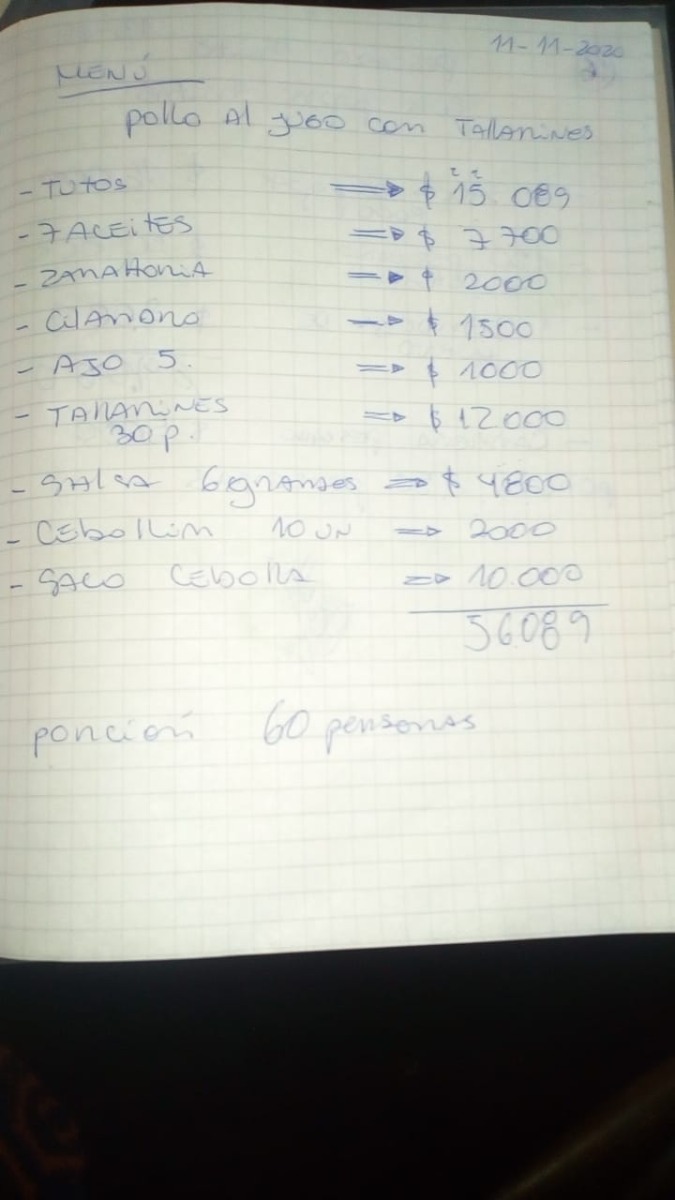 11-11-2020
MENÚ
pollo Al jugo con TAllARiNES
- TUtOS => $ 15.089
- 7 ACEitES => $ 7700
- ZANAHORiA => $ 2000
- CilANDRO => $ 1500
- AJO 5. => $ 1000
- TAllARiNES => $ 12000
30 p.
- SALSA 6 gRANDES => $ 4800
- CEbollíN 10 UN => 2000
- SACO CEbollA => 10.000
56089
poRción 60 peRsonas